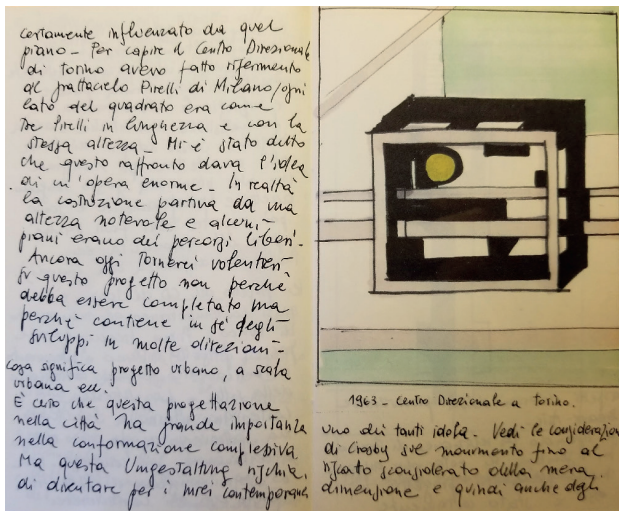 certamente influenzato da quel
piano – Per capire il Centro Direzionale
di Torino avevo fatto riferimento
al grattacielo Pirelli di Milano/ogni
lato del quadrato era come
tre Pirelli in lunghezza e con la
stessa altezza – Mi è stato detto
che questo raffronto dava l'idea
di un'opera enorme – In realtà
la costruzione partiva da una
altezza notevole e alcuni
piani erano dei percorsi liberi –
Ancora oggi tornerei volentieri
su questo progetto non perché
debba essere completato ma
perché contiene in sé degli
sviluppi in molte direzioni –
Cosa significa progetto urbano, a scala
urbana ecc.
È certo che questa progettazione
nella città ha grande importanza
nella conformazione complessiva.
Ma questa Umgestaltung rischia
di diventare per i miei contemporanei
1963 – Centro Direzionale a Torino.
uno dei tanti idola – Vedi le considerazioni
di Crosby sul monumento fino al
riscato sconsiderato della mera
dimensione e quindi anche degli